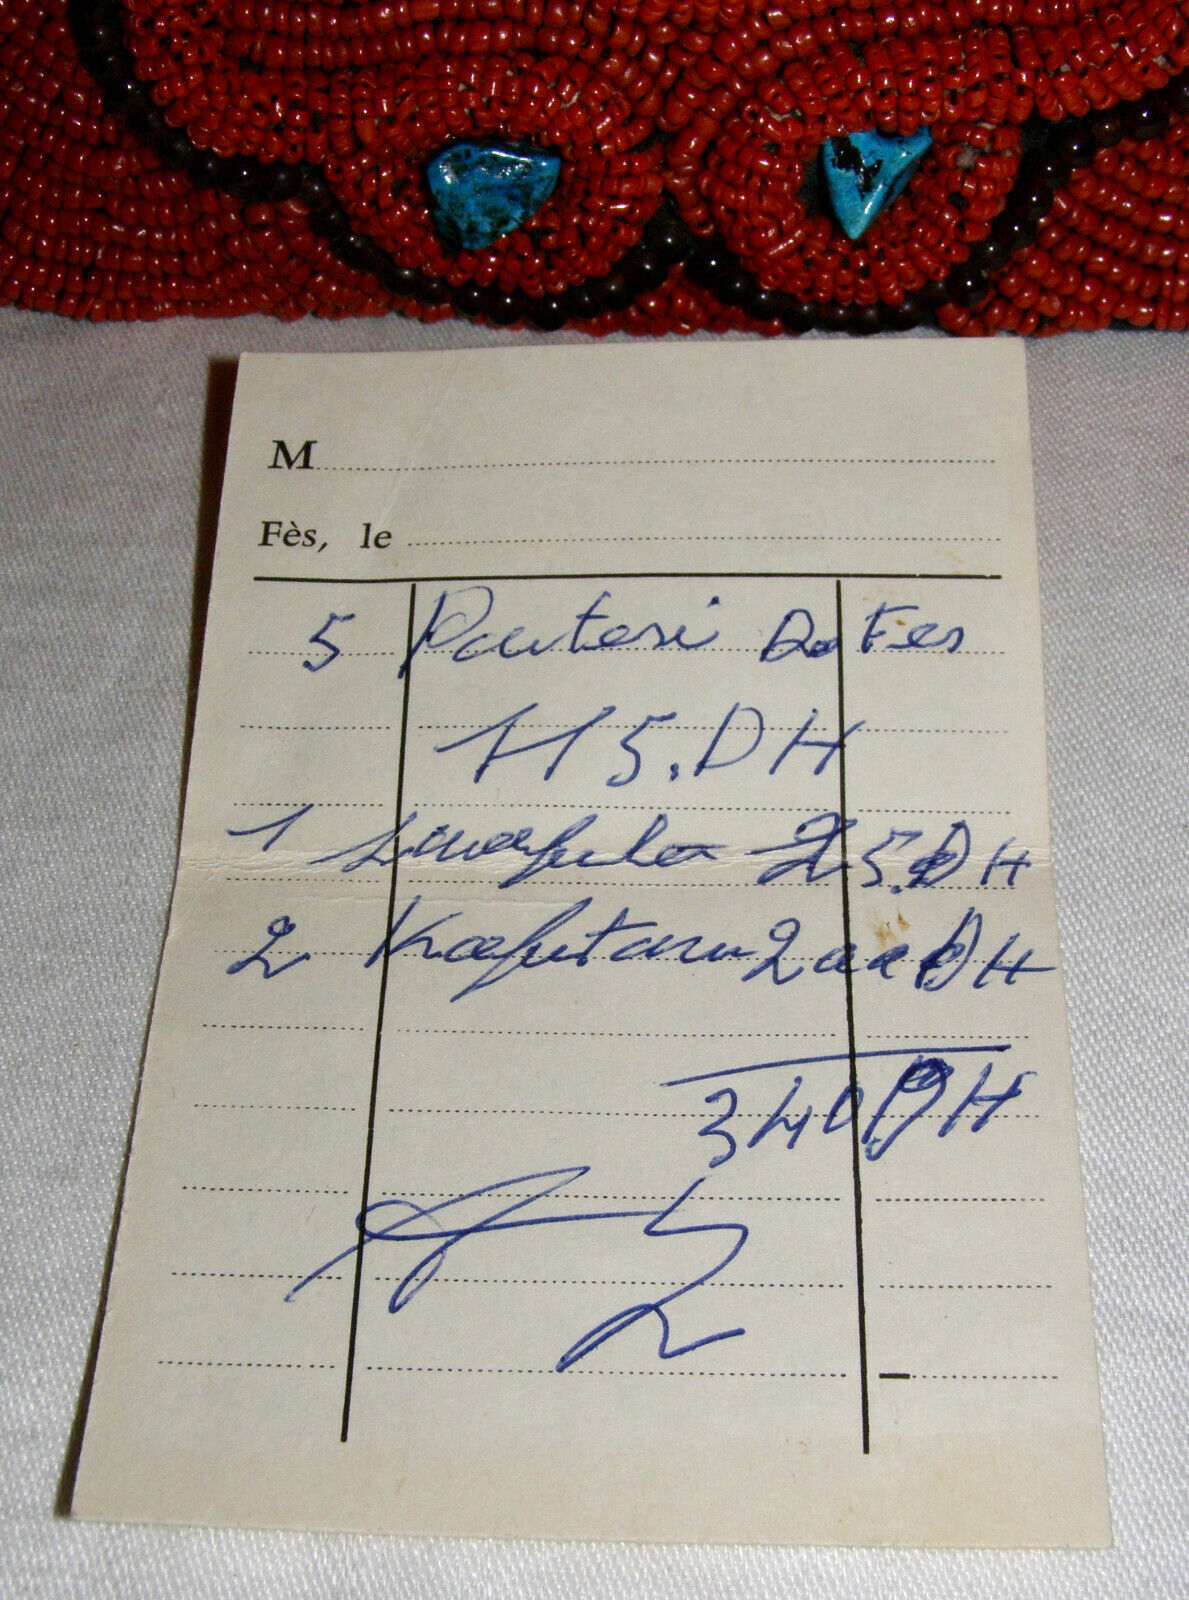 M
Fès, le
5 Pouteri De Fes
115.DH
1 25.DH
2 Kafutan 200 DH
340 DH